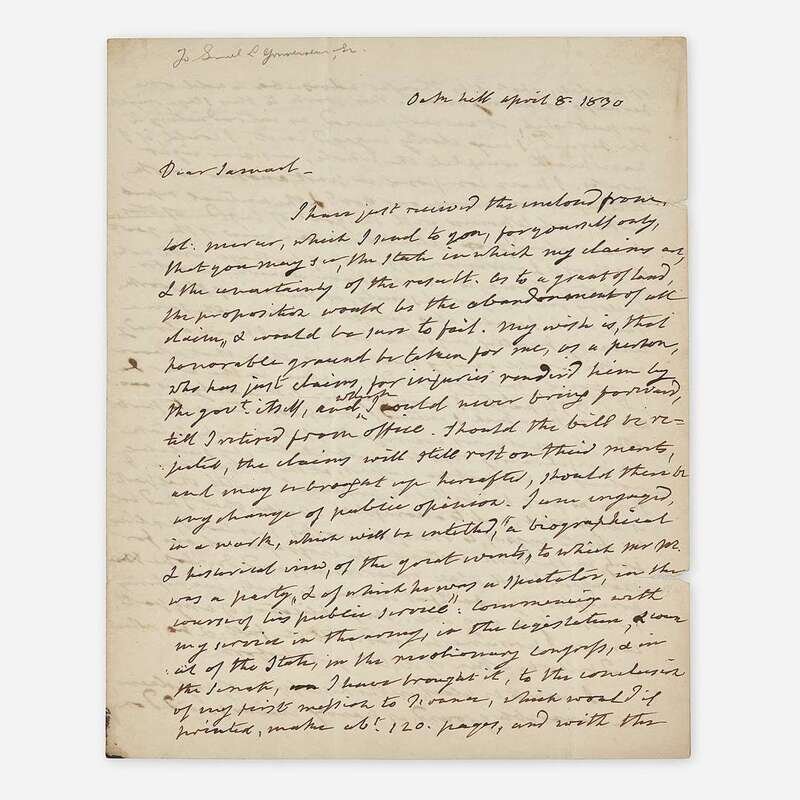 To Samuel L Gouverneur, Esr.
Oak hill april 8. 1830
Dear Samuel –
I have just received the enclosed from,
Col: mercer, which I send to you, for yourself only,
that you may see, the state in which my claims are,
& the uncertainty of the result. As to a grant of land,
the proposition would be the abandonment of all
claim, & would be sure to fail. My wish is, that
honorable ground be taken for me, as a person,
who has just claims, for injuries render'd him by
the govt. itself, and which I could never bring forward,
till I retired from office. Should the bill be re=
jected, the claims will still rest on their merits,
and may be brought up hereafter, should there be
any change of public opinion. I am engaged,
in a work, which will be intitled, "a biographical
& historical view, of the great events, to which mr M.
was a party, & of which he was a spectator, in the
course of his public service": commencing with
my service in the army, in the legislature, & coun
cil of the State, in the revolutionary congress, & in
the Senate, I have brought it, to the conclusion
of my first mission to France, which would if
printed, make abt. 120. pages, and with the